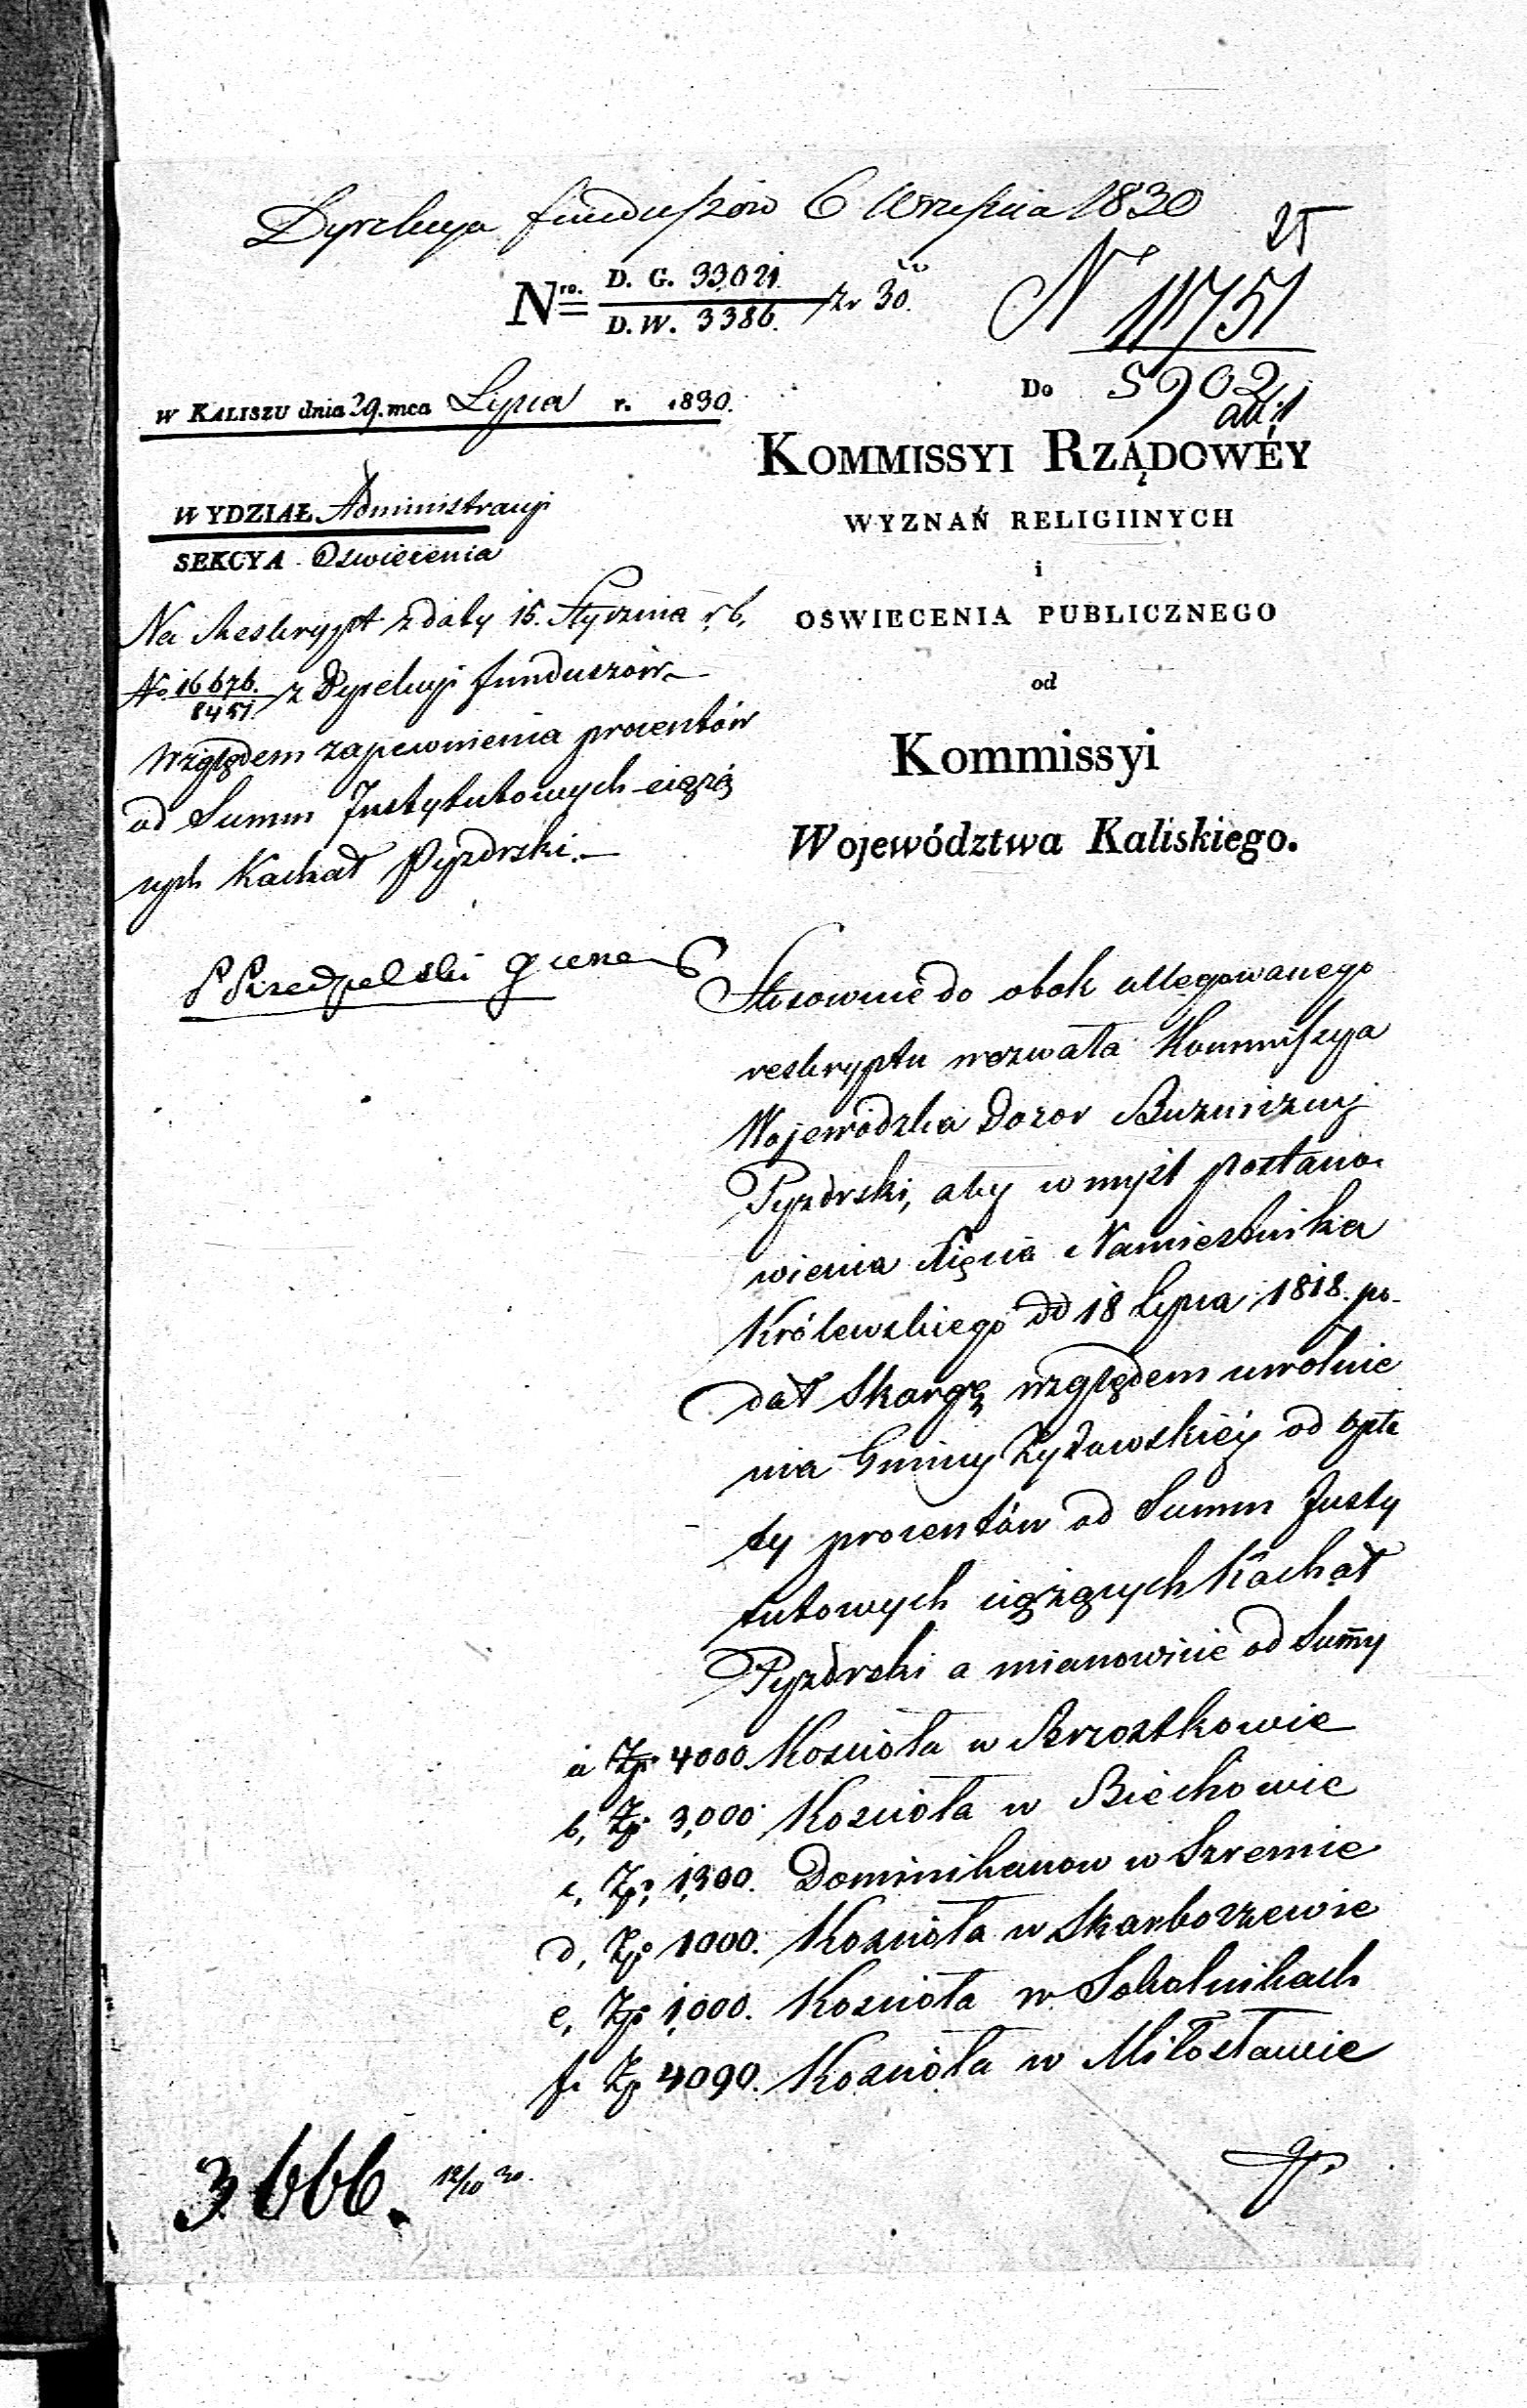 Dyrekcya funduszów 6 Września 1830
25
Nro. D. G. 33,021.
D. W. 3386. Zr 30.
N 11751
5902
W KALISZU dnia 29. mca Lipca r. 1830.
Do
KOMMISSYI RZĄDOWÉY
WYZNAŃ RELIGIINYCH
i
OSWIECENIA PUBLICZNEGO
od
Kommissyi
Województwa Kaliskiego.
WYDZIAŁ Administracyi
SEKCYA Oswiecenia
Na Reskrypt z daty 15. Stycznia r. b.
No. 16676.
8451. z Dyrekcyi funduszów
względem zapewnienia procentów
od Summ Instytutowych ciążą
cych Kachał Pyzdrski.—
Stosownie do obok allegowanego
reskryptu wezwała Kommissya
Wojewódzka Dozor Buzniczny
Pyzdrski, aby w myśl postano
wienia Xięcia Namiestnika
Królewskiego dd 18 Lipca 1818. po-
dał Skargę względem uwolnie
nia Gminy Żydowskiéy od opła
ty procentów od Summ Insty
tutowych ciążących Kachał
Pyzdrski a mianowicie od Summy
a Zp. 4000. Kościoła w Brzostkowie
b, Zp. 3,000 Kościoła w Biechowie
c, Zp. 1,300. Dominikanow w Szremie
d, Zp. 1000. Kościoła w Skarborzewie
e, Zp. 1,000. Kościoła w Sokolnikach
f. Zp. 4090. Kościoła w Miłosławie
3666. 12/10 30.